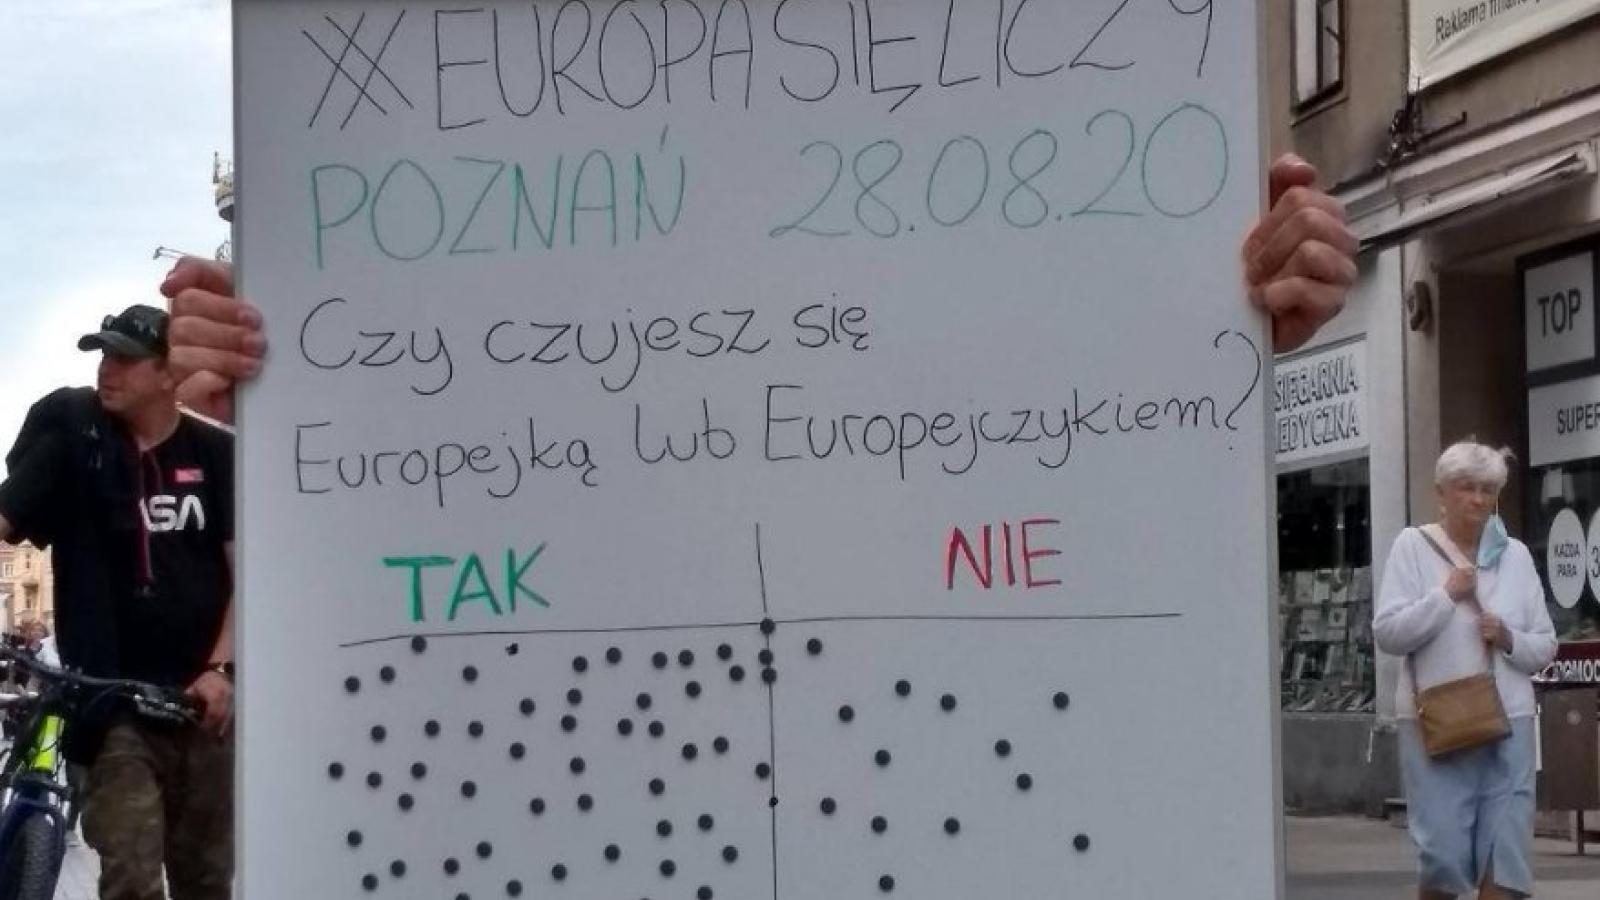 XX EUROPA SIĘ LICZY
POZNAŃ 28.08.20
Czy czujesz się
Europejką lub Europejczykiem?
TAK NIE
Reklama
TOP
SUPER
SIĘGARNIA
EDYCZNA
ASA
KAŻDA
PARA
3